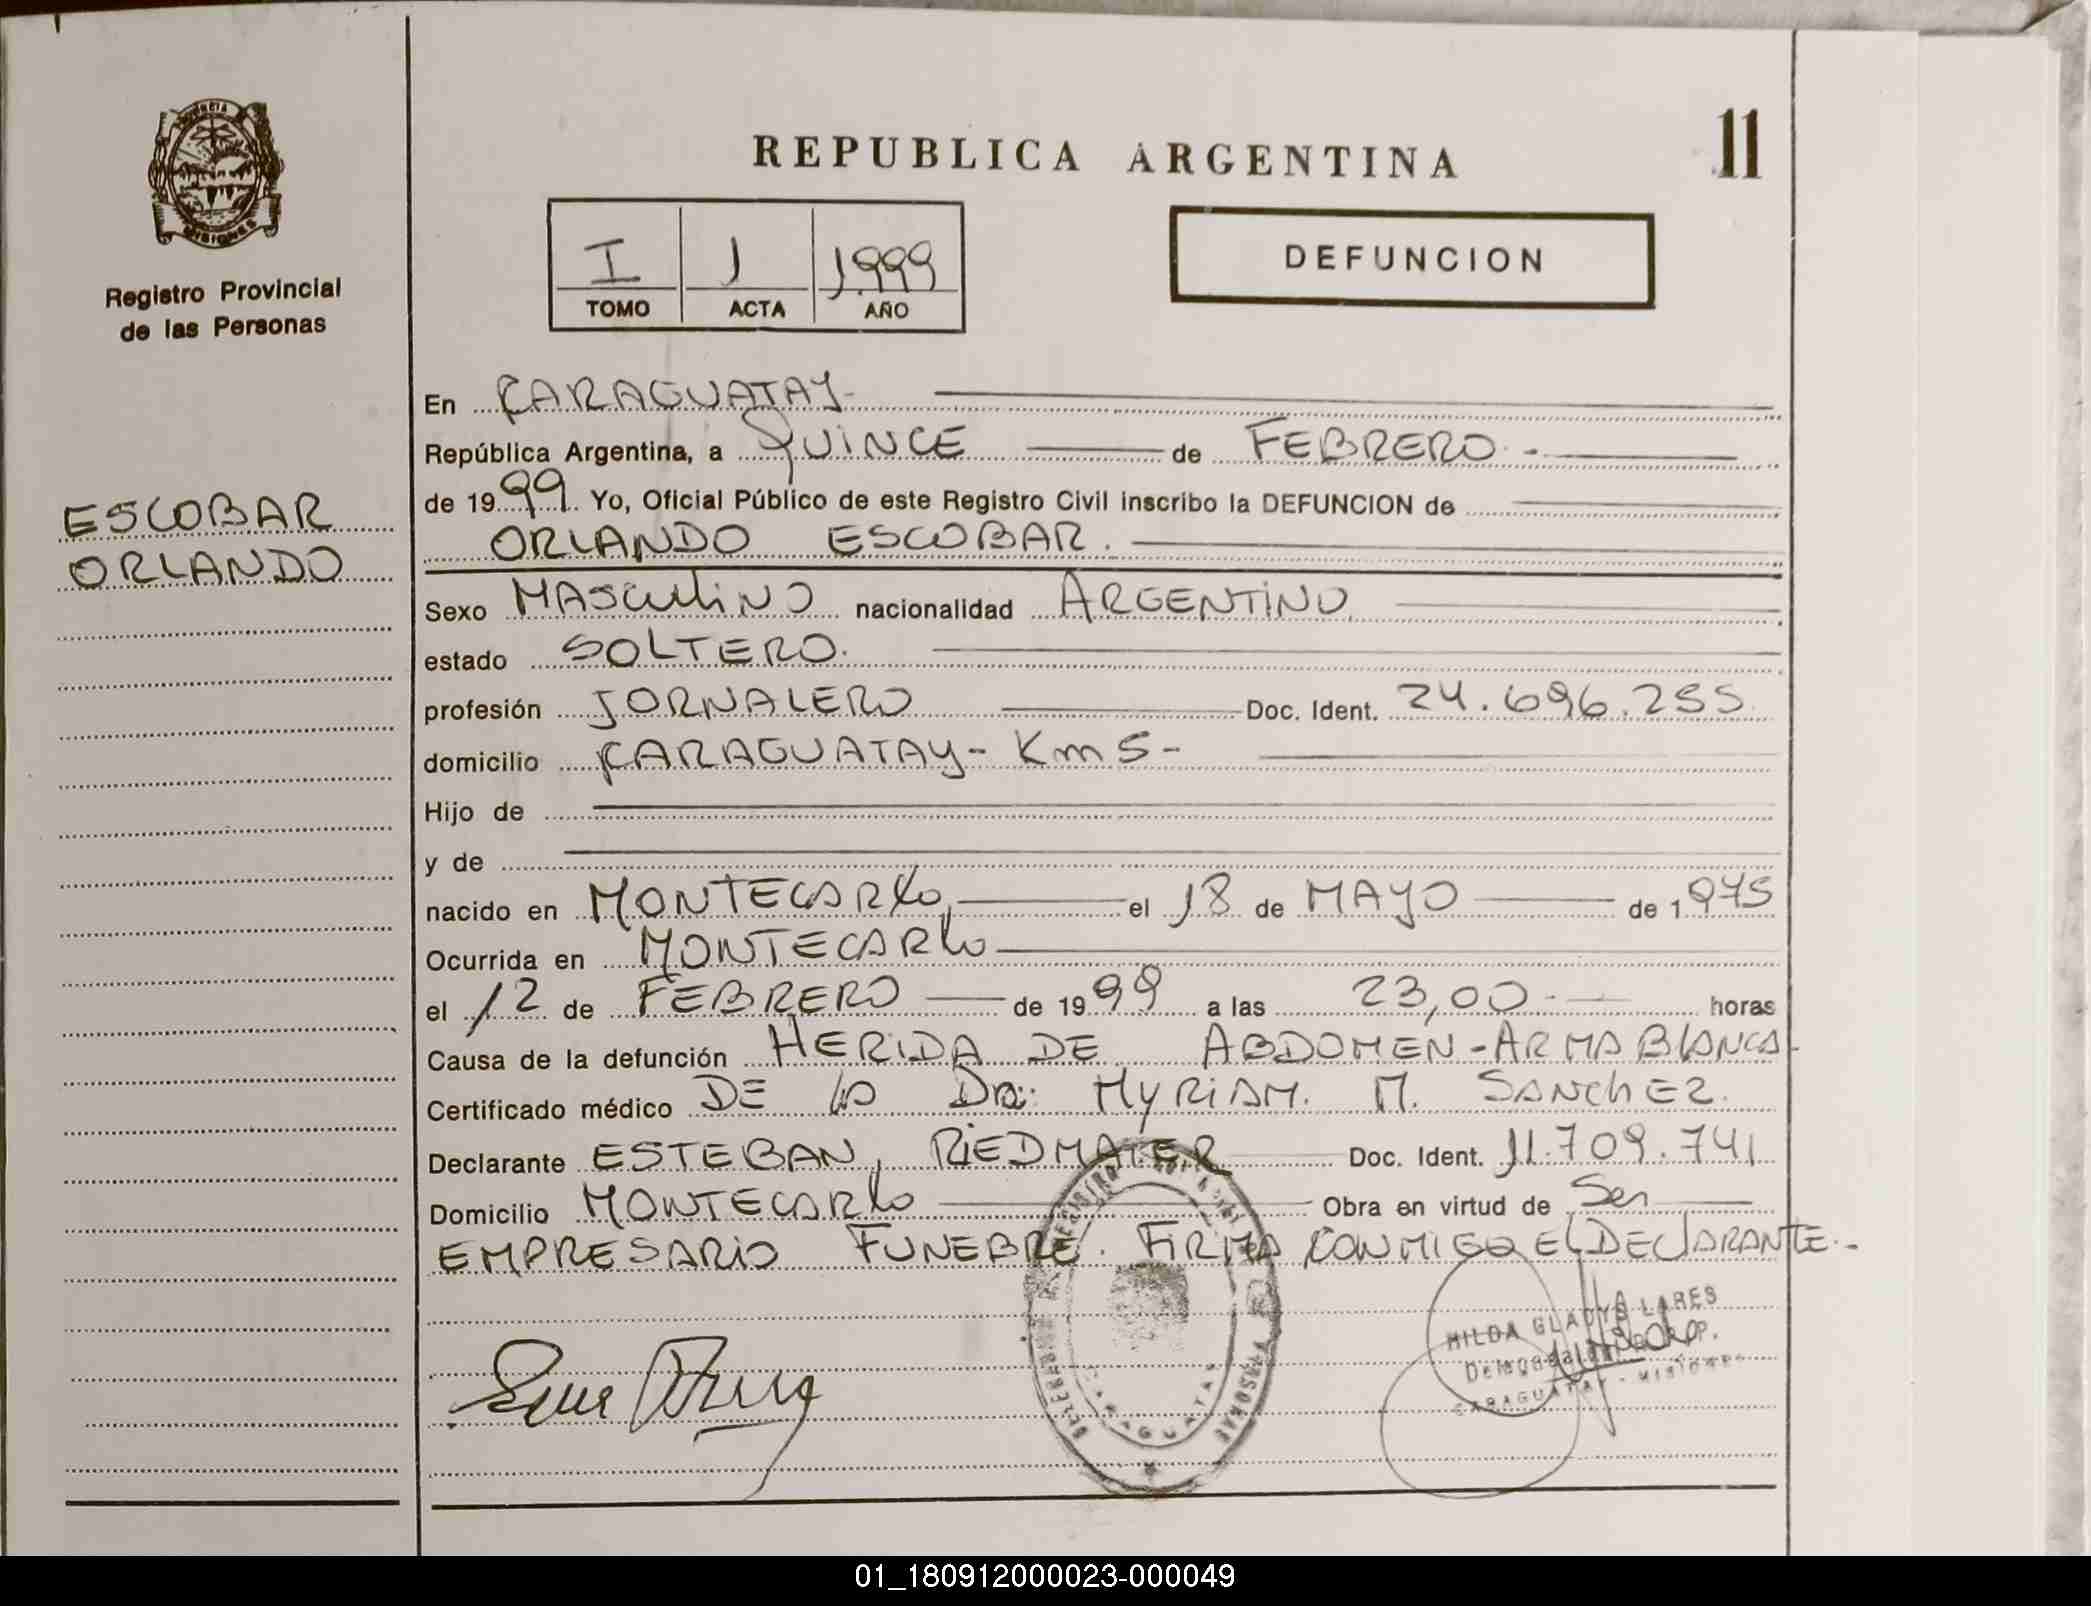 PROVINCIA
MISIONES
Registro Provincial
de las Personas
ESCOBAR
ORLANDO
REPUBLICA ARGENTINA
11
I 1 1999
TOMO ACTA AÑO
DEFUNCION
En CARAGUATAY-
República Argentina, a QUINCE de FEBRERO -
de 1999. Yo, Oficial Público de este Registro Civil inscribo la DEFUNCION de
ORLANDO ESCOBAR.
Sexo MASCULINO nacionalidad ARGENTINO
estado SOLTERO.
profesión JORNALERO Doc. Ident. 24.696.255
domicilio CARAGUATAY- Km 5-
Hijo de
y de
nacido en MONTECARLO, el 18 de MAYO de 1975
Ocurrida en MONTECARLO
el 12 de FEBRERO de 1999 a las 23,00 - horas
Causa de la defunción HERIDA DE ABDOMEN - ARMA BLANCA-
Certificado médico DE LA Dra: MYRIAM. M. SANCHEZ.
Declarante ESTEBAN, RIEDMAIER Doc. Ident. 11.709.741
Domicilio MONTECARLO Obra en virtud de Ser
EMPRESARIO FUNEBRE. FIRMA CONMIGO EL DECLARANTE.-
HILDA GLADYS LARES
CARAGUATAY - MISIONES
CARAGUATAY
01_180912000023-000049